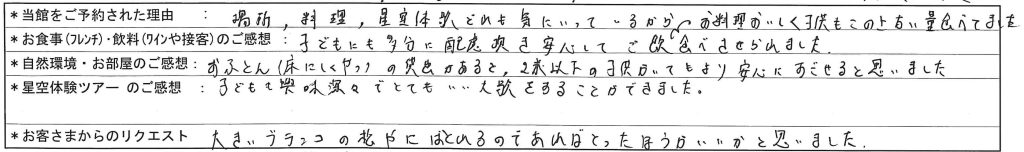 *当館をご予約された理由 : 場所，料理，星空体験どれも気にいっているから。お料理おいしく子供もこの上ない量食べてました
*お食事(フレンチ)・飲料(ワインや接客)のご感想 : 子どもにも多分に配慮頂き安心してご飲食べさせられました.
*自然環境・お部屋のご感想 : おふとん(床にしくやつ)の貸出があると，2才以下の子供がいてもより安心にすごせると思いました
*星空体験ツアー のご感想 : 子どもも興味深々でとてもいい体験をすることができました。
*お客さまからのリクエスト 大きいブランコの花やにほどれるのであればとったほうがいいかと思いました.